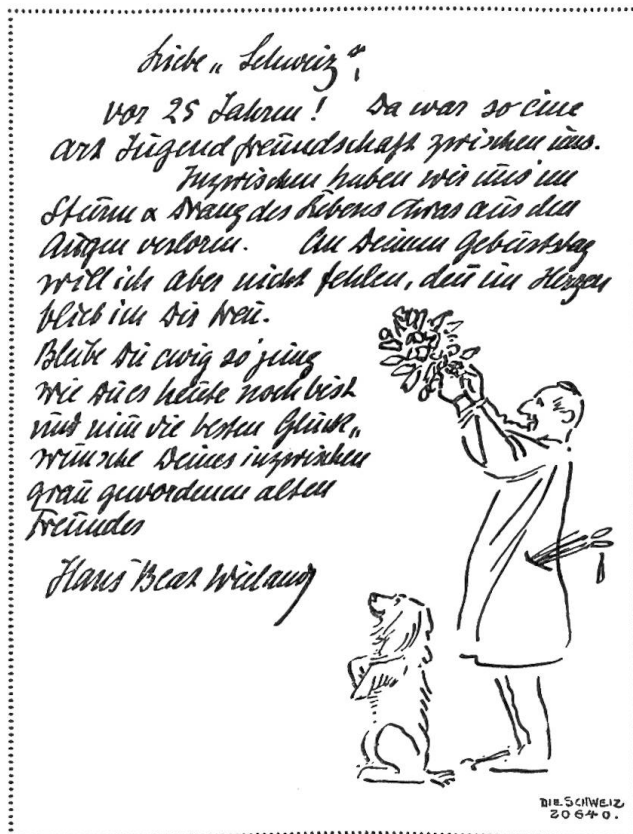 Liebe „Schweiz“!
vor 25 Jahren! Da war so eine
Art Jugendfreundschaft zwischen uns.
Inzwischen haben wir uns im
Sturm & Drang des Lebens etwas aus den
Augen verloren. An Deinem Geburtstag
will ich aber nicht fehlen, den im Herzen
blieb ich Dir treu.
Bleibe Du ewig so jung
wie Du es heute noch bist
und nim die besten Glück„
wünsche Deines inzwischen
grau gewordenen alten
Freundes
Hans Beat Wieland
DIE SCHWEIZ
20640.